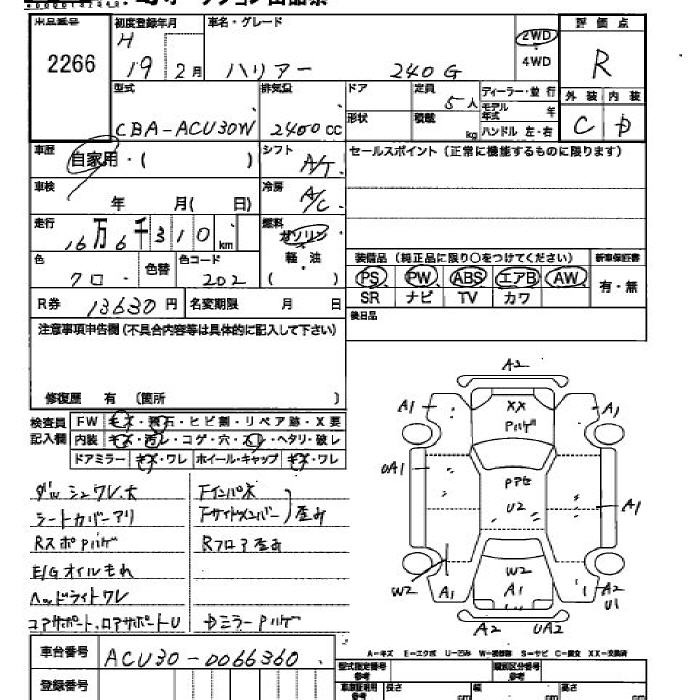 出品番号 初度登録年月 車名・グレード 2WD 4WD 評価点
2266 H 19 2月 ハリアー 240G R
型式 排気量 ドア 定員 5人 ディーラー・並行 外装 内装
形状 積載 kg モデル年式 年
CBA-ACU30W 2400cc ハンドル 左・右 C D
車歴 自家用・( ) シフト A/T セールスポイント (正常に機能するものに限ります)
車検 年 月( 日) 冷房 A/C
走行 16万6千310km 燃料 ガソリン 軽・油 ( )
色 クロ 色替 色コード 202
装備品 (純正品に限り○をつけてください) 新車保証書
PS PW ABS エアB AW 有・無
SR ナビ TV カワ
R券 13630円 名変期限 月 日 後日品
注意事項申告欄 (不具合内容等は具体的に記入して下さい)
修復歴 有 (箇所 )
検査員記入欄 FW キズ・飛石・ヒビ割・リペア跡・X要
内装 キズ・汚レ・コゲ・穴・スレ・ヘタリ・破レ
ドアミラー キズ・ワレ ホイール・キャップ キズ・ワレ
ダッシュワレ大 Fインパネ
シートカバーアリ Fサイドメンバー 歪み
RスポPハゲ Rフロア歪み
E/Gオイルもれ
ヘッドライトワレ
コアサポート、ロアサポートU DミラーPハゲ
A2
A1 XX A1
Pハゲ
UA1 U2 A1
W2 A1 W2 A1 A2 U1
A2 UA2
A-キズ E-エクボ U-凹み W-補修跡 S-サビ C-腐食 XX-交換済
車台番号 ACU30-0066360
型式指定番号 参考 類別区分番号 参考
登録番号 車庫証明用 参考 長さ cm 幅 cm 高さ cm